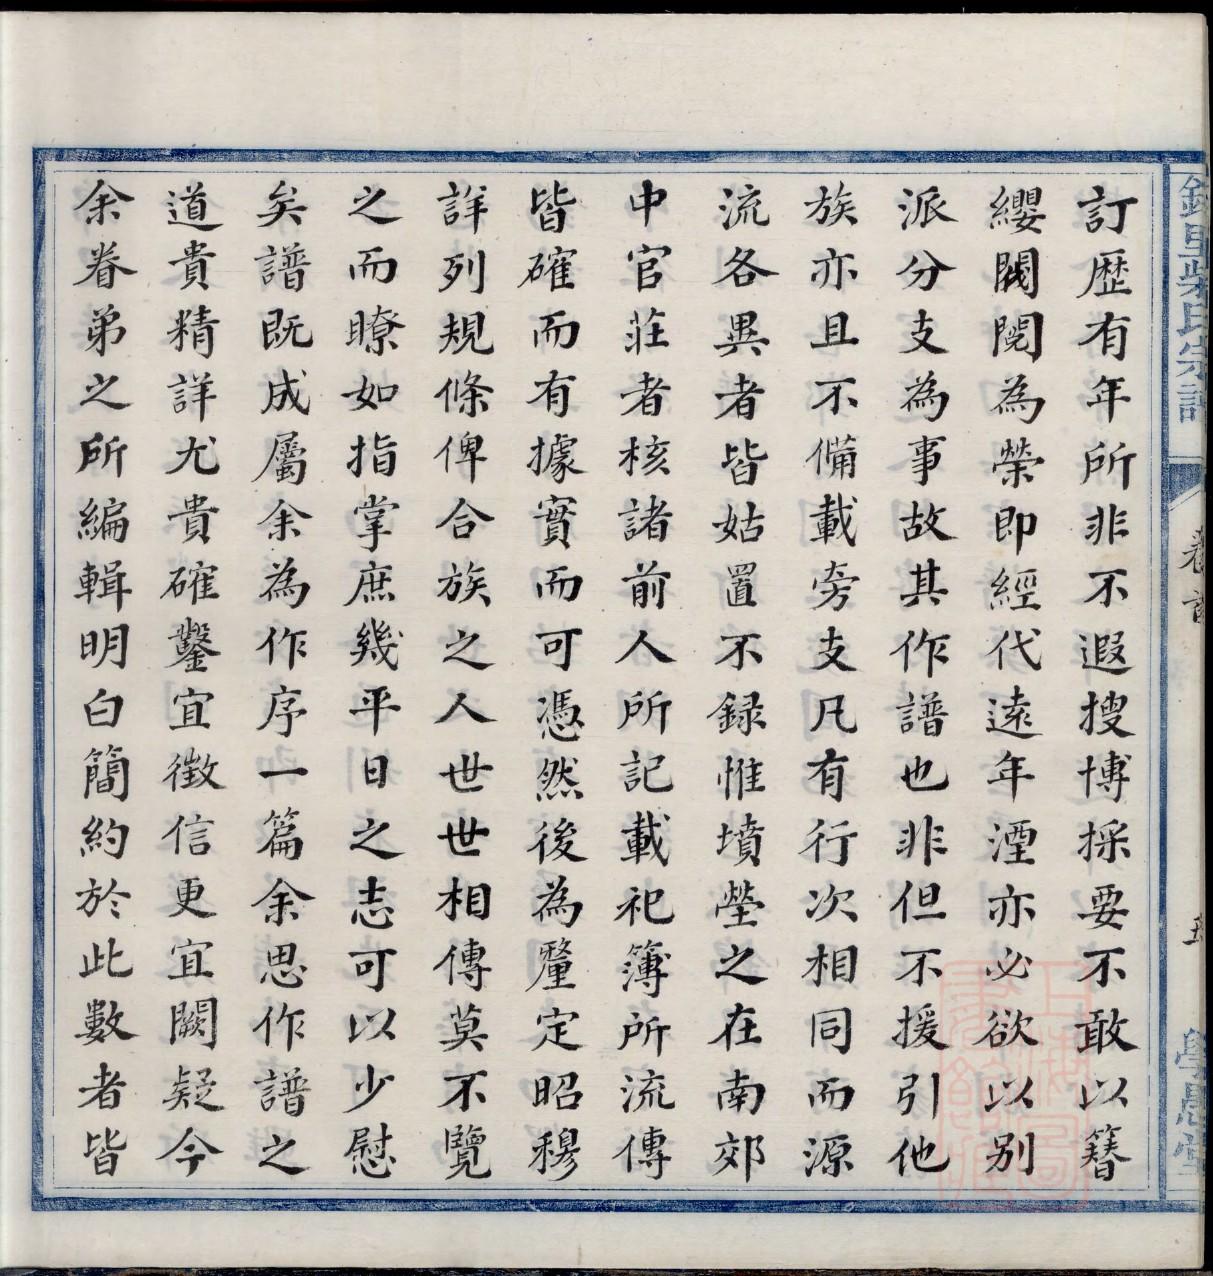 訂歴有年所非不遐搜博採要不敢以簪
纓閥閱為榮即經代遠年湮亦必欲以别
派分支為事故其作譜也非但不援引他
族亦且不備載旁支凡有行次相同而源
流各異者皆姑置不録惟墳塋之在南郊
中官莊者核諸前人所記載祀簿所流傳
皆確而有據實而可憑然後為釐定昭穆
詳列規條俾合族之人世世相傳莫不覽
之而瞭如指掌庶幾平日之志可以少慰
矣譜既成屬余為作序一篇余思作譜之
道貴精詳尤貴確鑿宜徵信更宜闕疑今
余眷弟之所編輯明白簡約於此數者皆
柴氏宗譜
卷首
學思堂